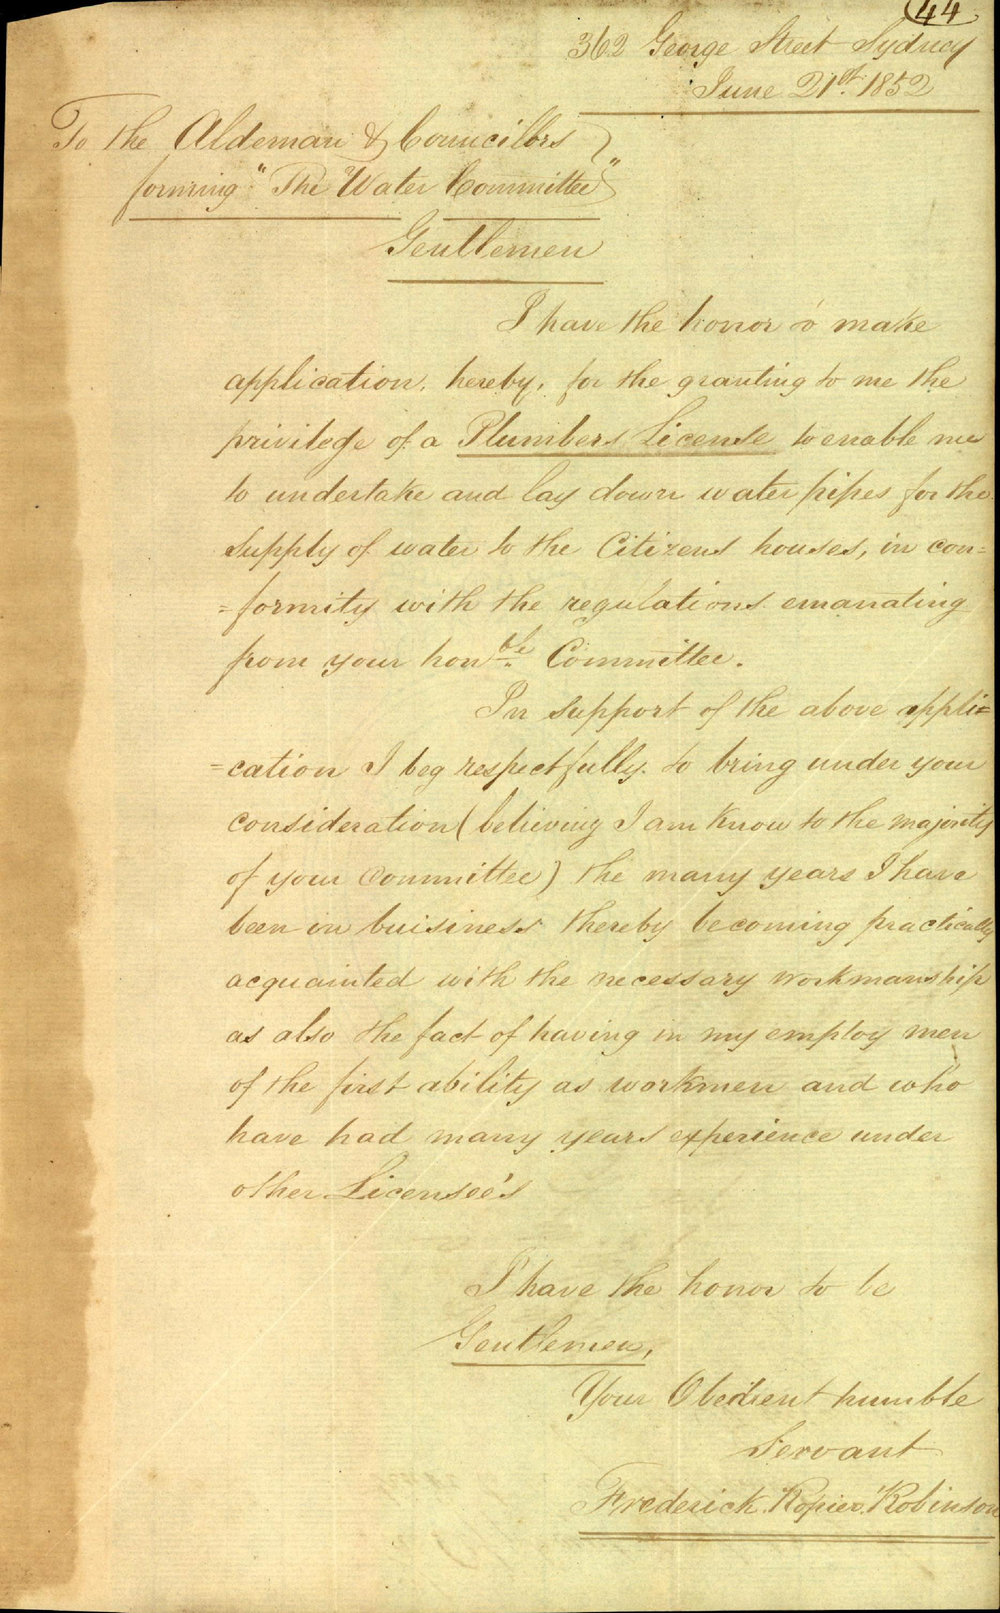 44
362 George Street Sydney
June 21st. 1852
To the Aldeman & Councillors
forming "The Water Committee"
Gentlemen
I have the honor to make
application, hereby, for the granting to me the
privilege of a Plumbers License to enable me
to undertake and lay down water pipes for the
supply of water to the Citizens houses, in con=
=formity with the regulations emanating
from your honble. Committee.
In support of the above appli=
=cation I beg respectfully to bring under your
consideration (believing I am know to the majority
of your Committee) the many years I have
been in buisiness thereby becoming practically
acquainted with the necessary workmanship
as also the fact of having in my employ men
of the first ability as workmen and who
have had many years experience under
other Licensee's
I have the honor to be
Gentlemen,
Your Obedient humble
Servant
Frederick Ropier Robinson